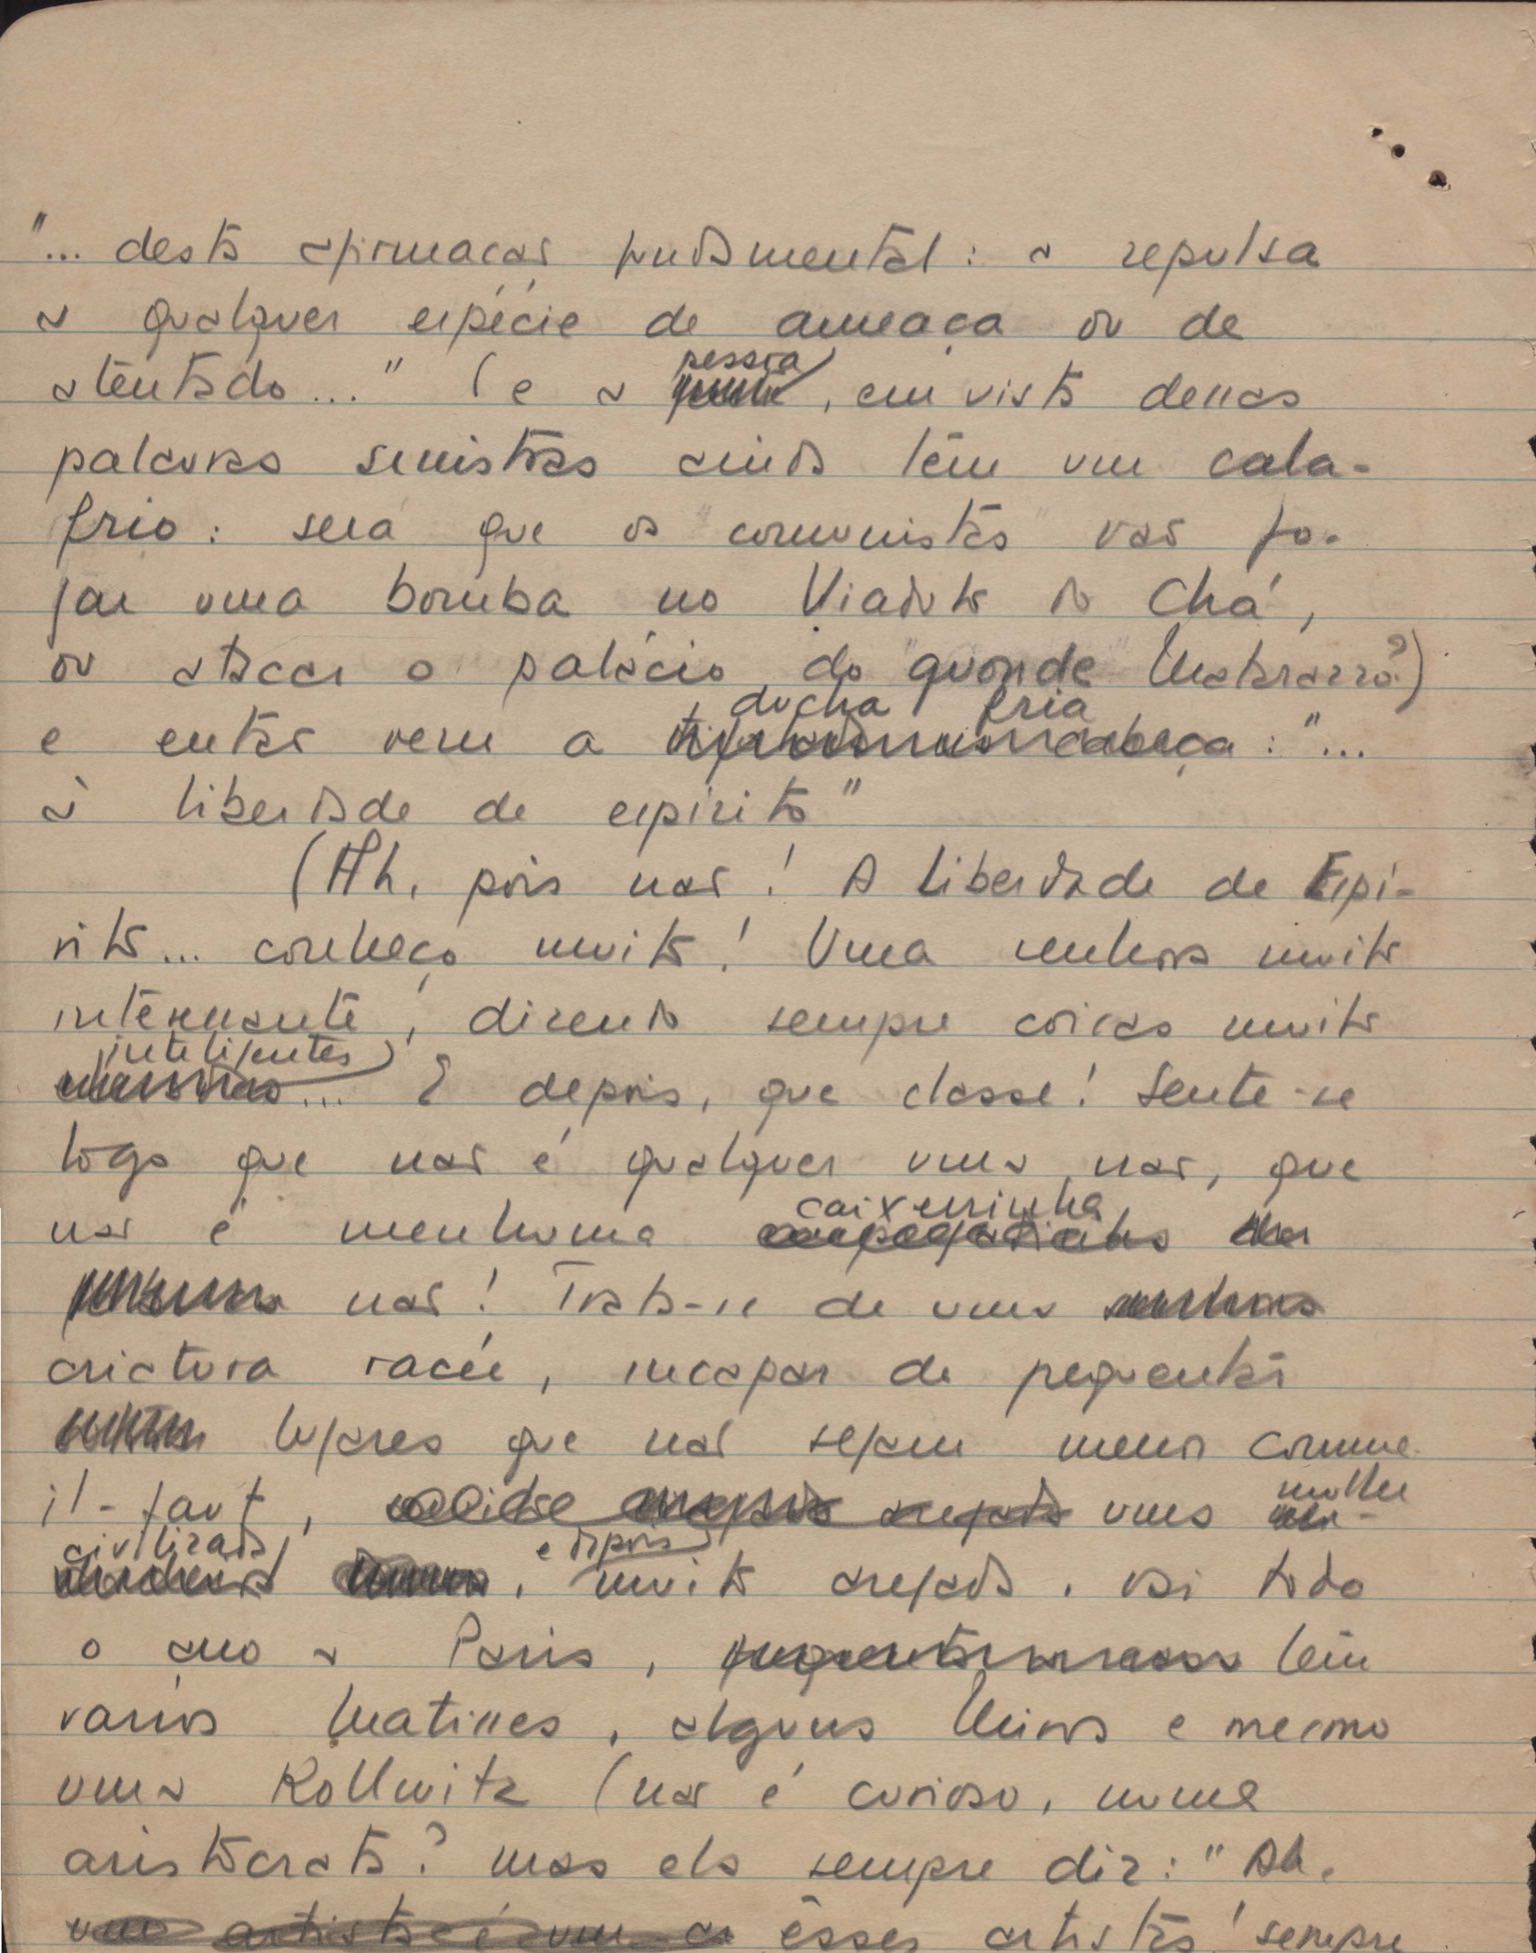 "... desta afirmação fundamental: a repulsa
a qualquer espécie de ameaça ou de
atentado..." (e a pessoa, em vista dessas
palavras sinistras ainda têm um cala-
frio: será que os "comunistas" vão jo-
gar uma bomba no Viaduto do Chá,
ou atacar o palácio do "guonde" Matarazzo?)
e então vem a ducha fria: "...
à liberdade de espírito"
(Ah, pois não! A Liberdade de Espí-
rito... conheço muito! Uma senhora muito
interessante, dizendo sempre coisas muito
inteligentes... E depois, que classe! Sente-se
logo que não é qualquer uma, não, que
não é nenhuma caixeirinha
não! Trata-se de uma
criatura racée, incapaz de frequentar
lugares que não sejam menos comme
il-faut, uma mulher
civilizada, e depois muito arejada, vai todo
o ano a Paris, têm
varios Matisses, alguns Miros e mesmo
uma Kollwitz (não é curioso, numa
aristocrata? mas ela sempre diz: "Ah,
êsses artistas! sempre